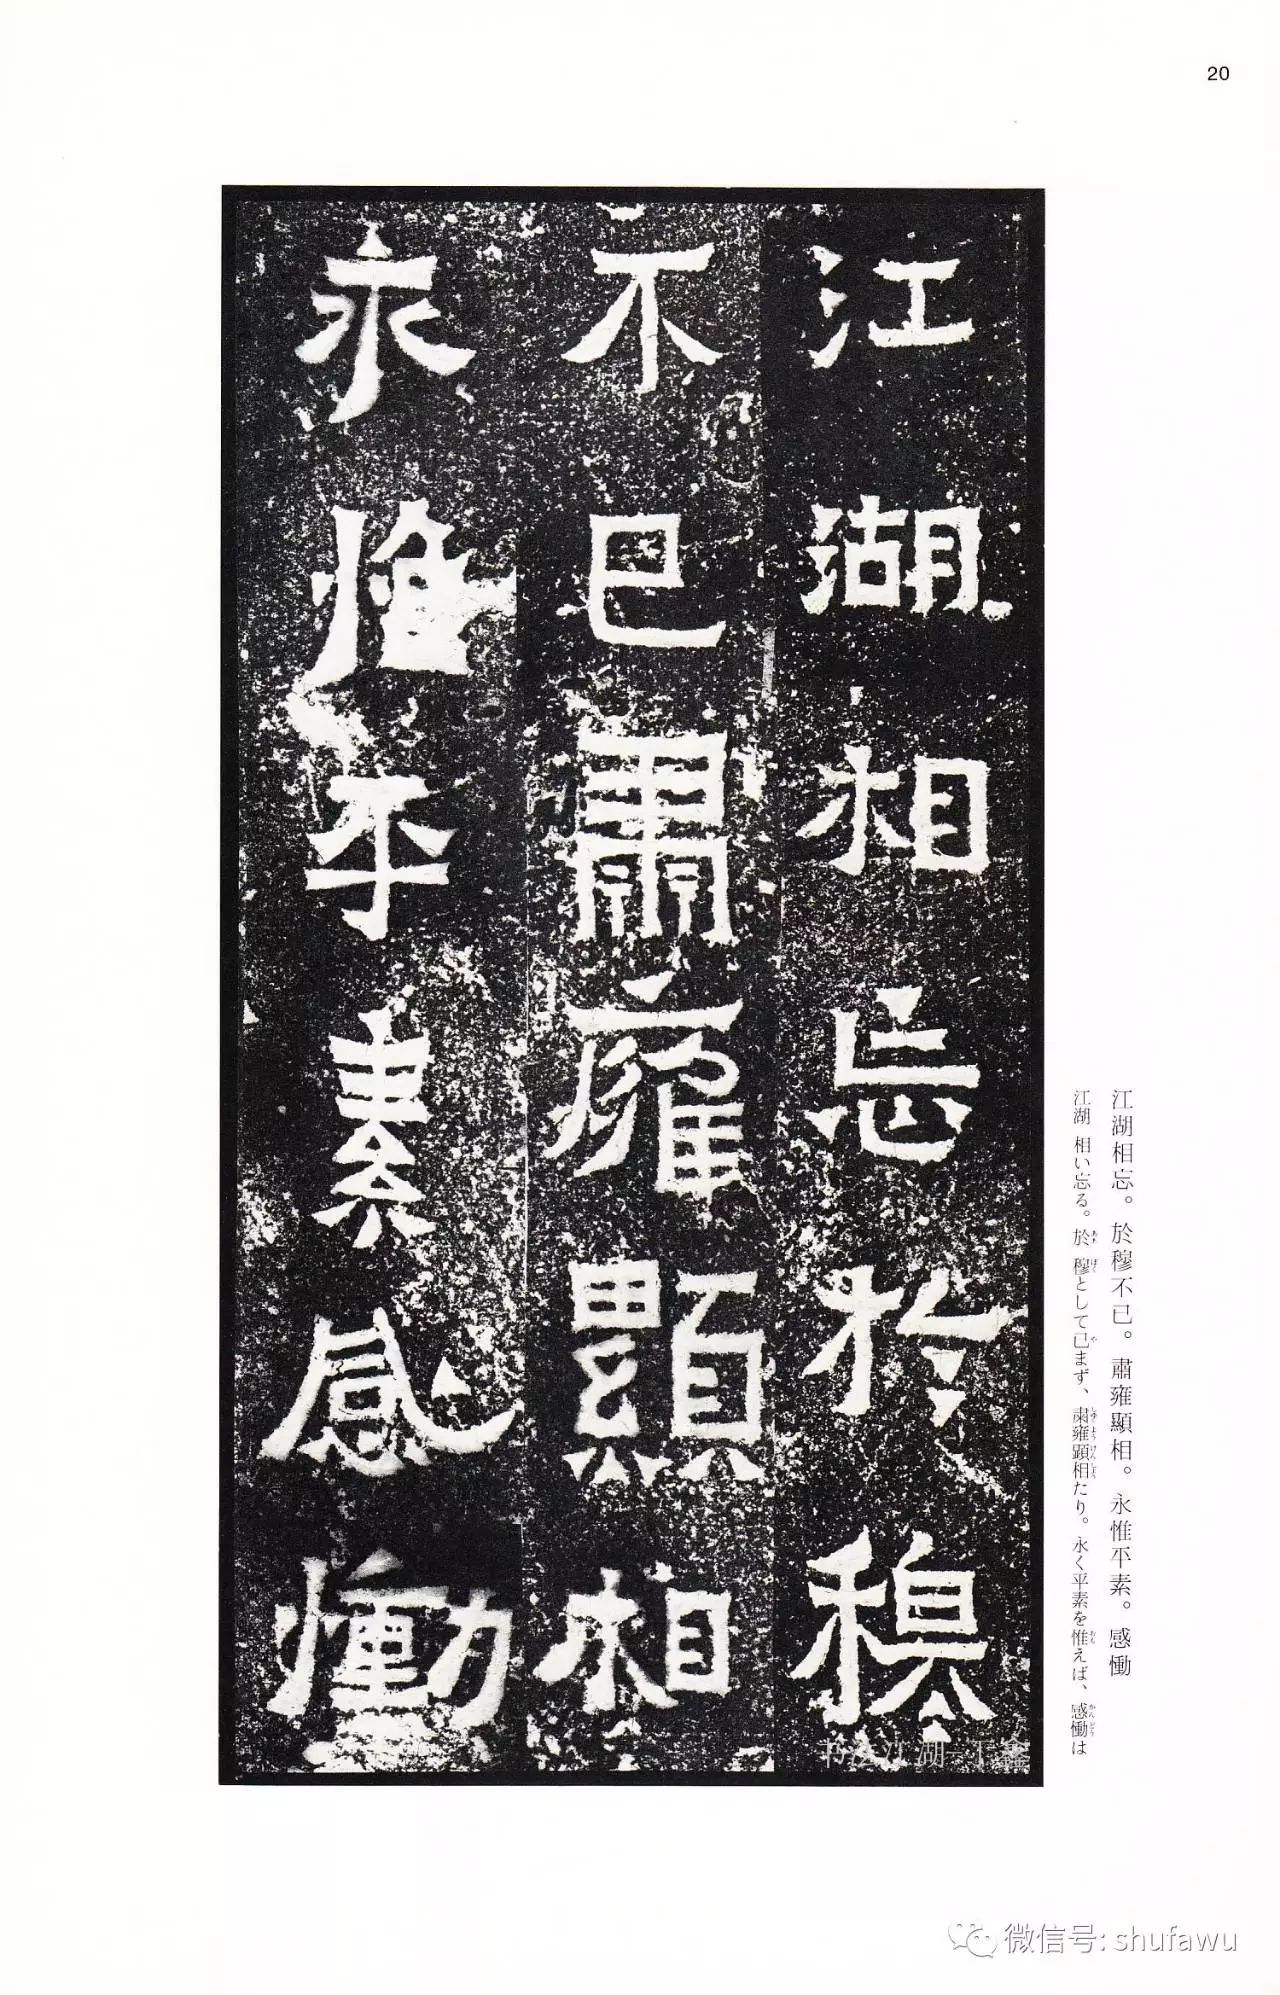 20
江湖相忘於穆
不已肅雍顯相
永惟平素感慟
江湖相忘。於穆不已。肅雍顯相。永惟平素。感慟
江湖 相い忘る。於 穆として已まず、肅雍顕相たり。永く平素を惟えば、感慟は
微信号: shufawu